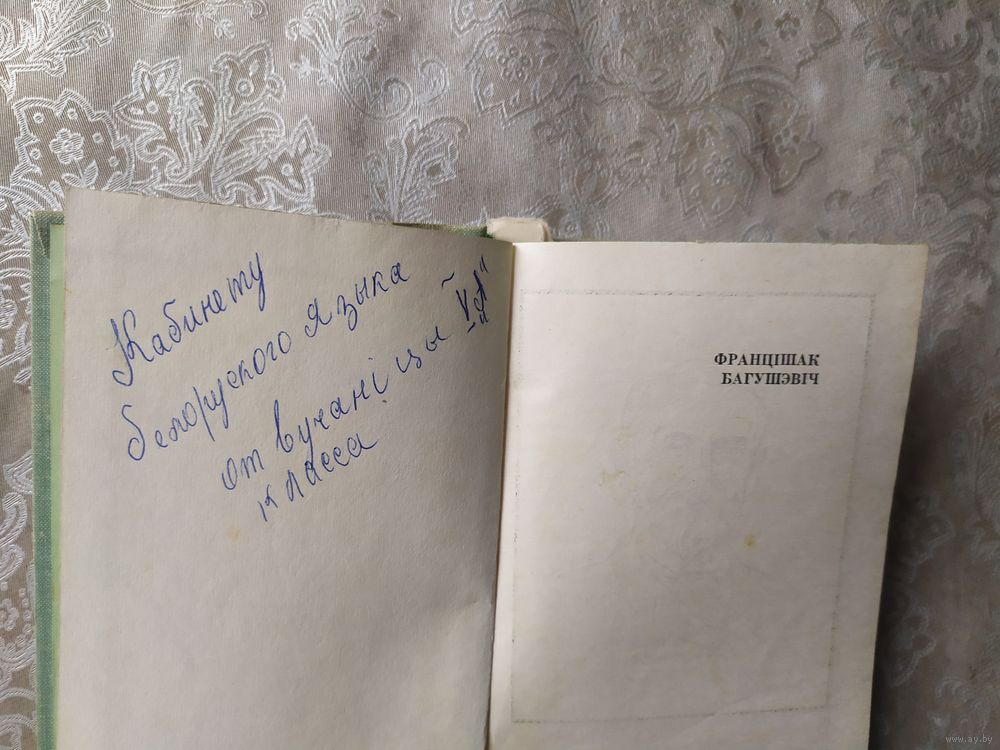 Кабинету
белоруского языка
от вучаніцы V "А"
класса
ФРАНЦІШАК
БАГУШЭВІЧ
www.ay.by